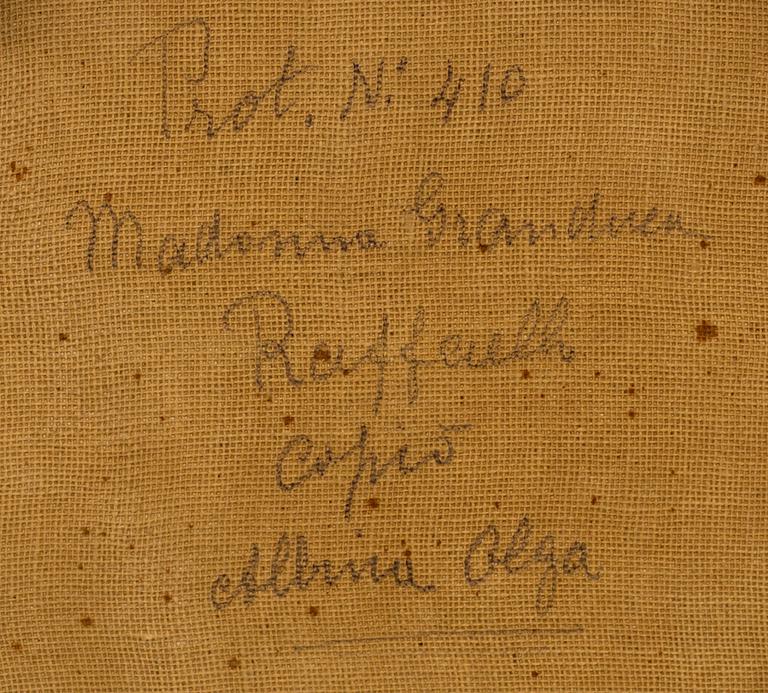 Prot. N.° 410
Madonna Granduca
Raffaello
copiò
Albina Olga